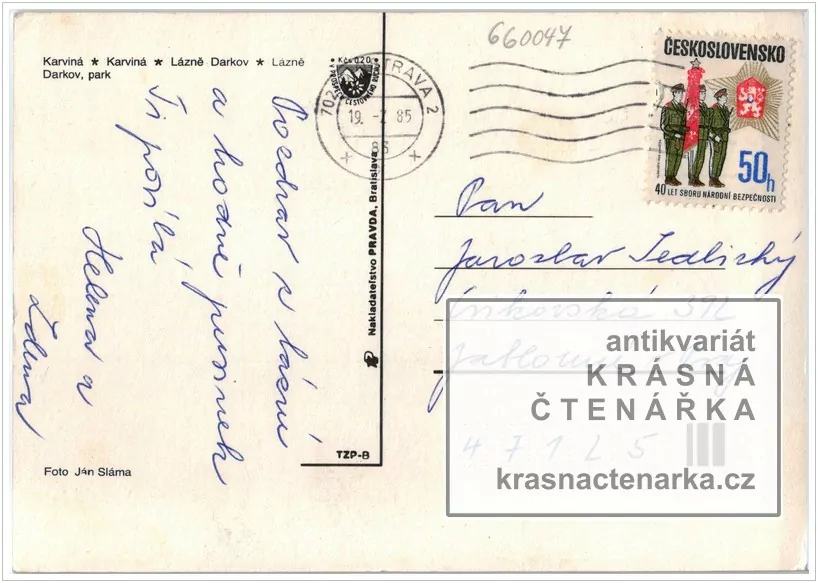 Karviná ★ Karviná ★ Lázně Darkov ★ Lázně
Darkov, park
Pozdrav z lázní
a hodně pusinek
Ti posílá
Helena a
Zdena
Foto Ján Sláma
Kčs 0,20
TZP-B
Nakladateľstvo PRAVDA, Bratislava
19. -2 85
660047
ČESKOSLOVENSKO
50h
40 LET SBORU NÁRODNÍ BEZPEČNOSTI
Pan
Jaroslav Sedlický
392
471 25
antikvariát
KRÁSNÁ
ČTENÁŘKA
krasnactenarka.cz